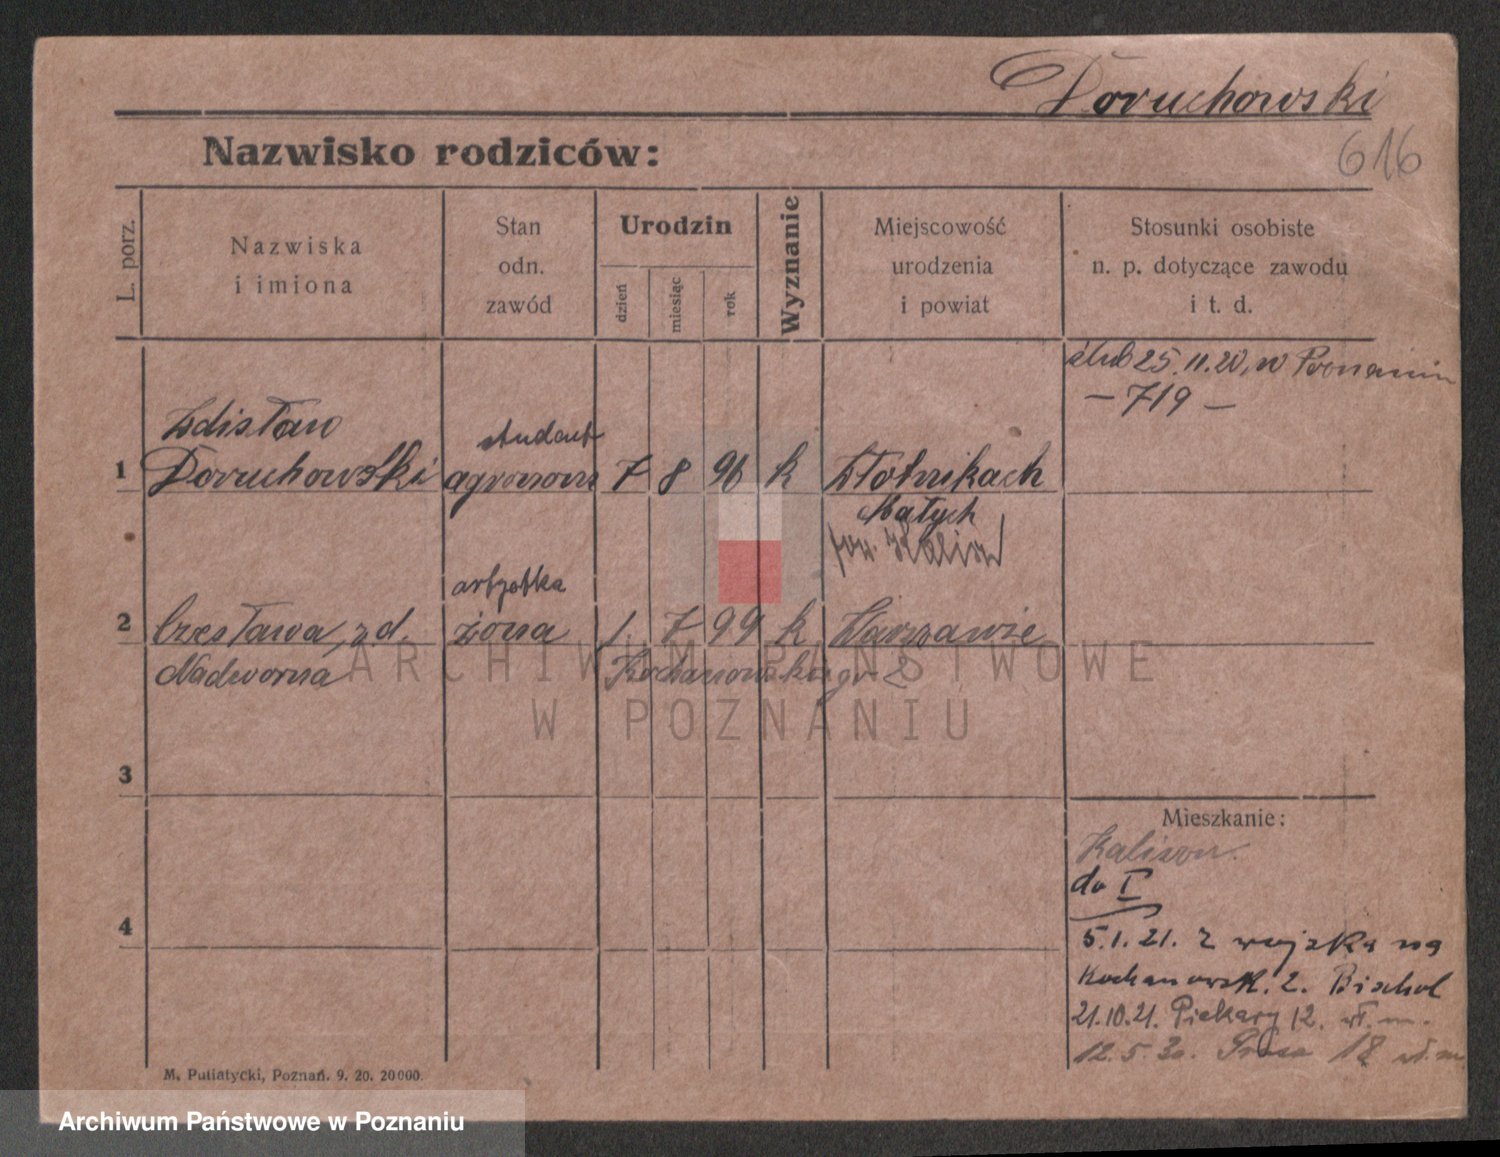 Doruchowski
616
Nazwisko rodziców:
L. porz.
Nazwiska
i imiona
Stan
odn.
zawód
Urodzin
dzień
miesiąc
rok
Wyznanie
Miejscowość
urodzenia
i powiat
Stosunki osobiste
n. p. dotyczące zawodu
i t. d.
ślub 25.11.20, w Poznaniu
— 719 —
Zdisław student
1 Doruchowski agronom 7 8 96 k Złotnikach
Małych
pow. Kalisz
artystka
2 Czesława, zd. żona 1. 7 99 k Warszawie
Nadworna Kochanowskiego 2
ARCHIWUM PAŃSTWOWE
W POZNANIU
3
Mieszkanie:
do I
4
5.1.21. z wojska na
Kochanowsk. 2. Bischof
21.10.21. Piekary 12. wł. m.
12.5.30. 18 wł. m
M. Putiatycki, Poznań. 9. 20. 20000.
Archiwum Państwowe w Poznaniu